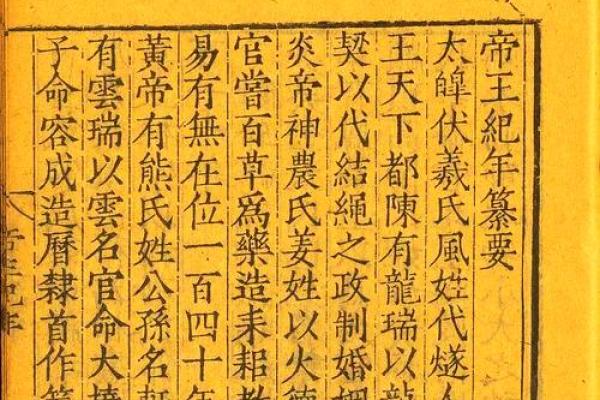 帝王紀年纂要
太皥伏羲氏風姓代燧人
王天下都陳有龍瑞以龍
契以代結繩之政制婚姻
炎帝神農氏姜姓以火德
官嘗百草爲藥造耒耜教
易有無在位一百四十年
黃帝有熊氏姓公孫名軒
有雲瑞以雲名官命大撓
子命容成造曆隸首作算